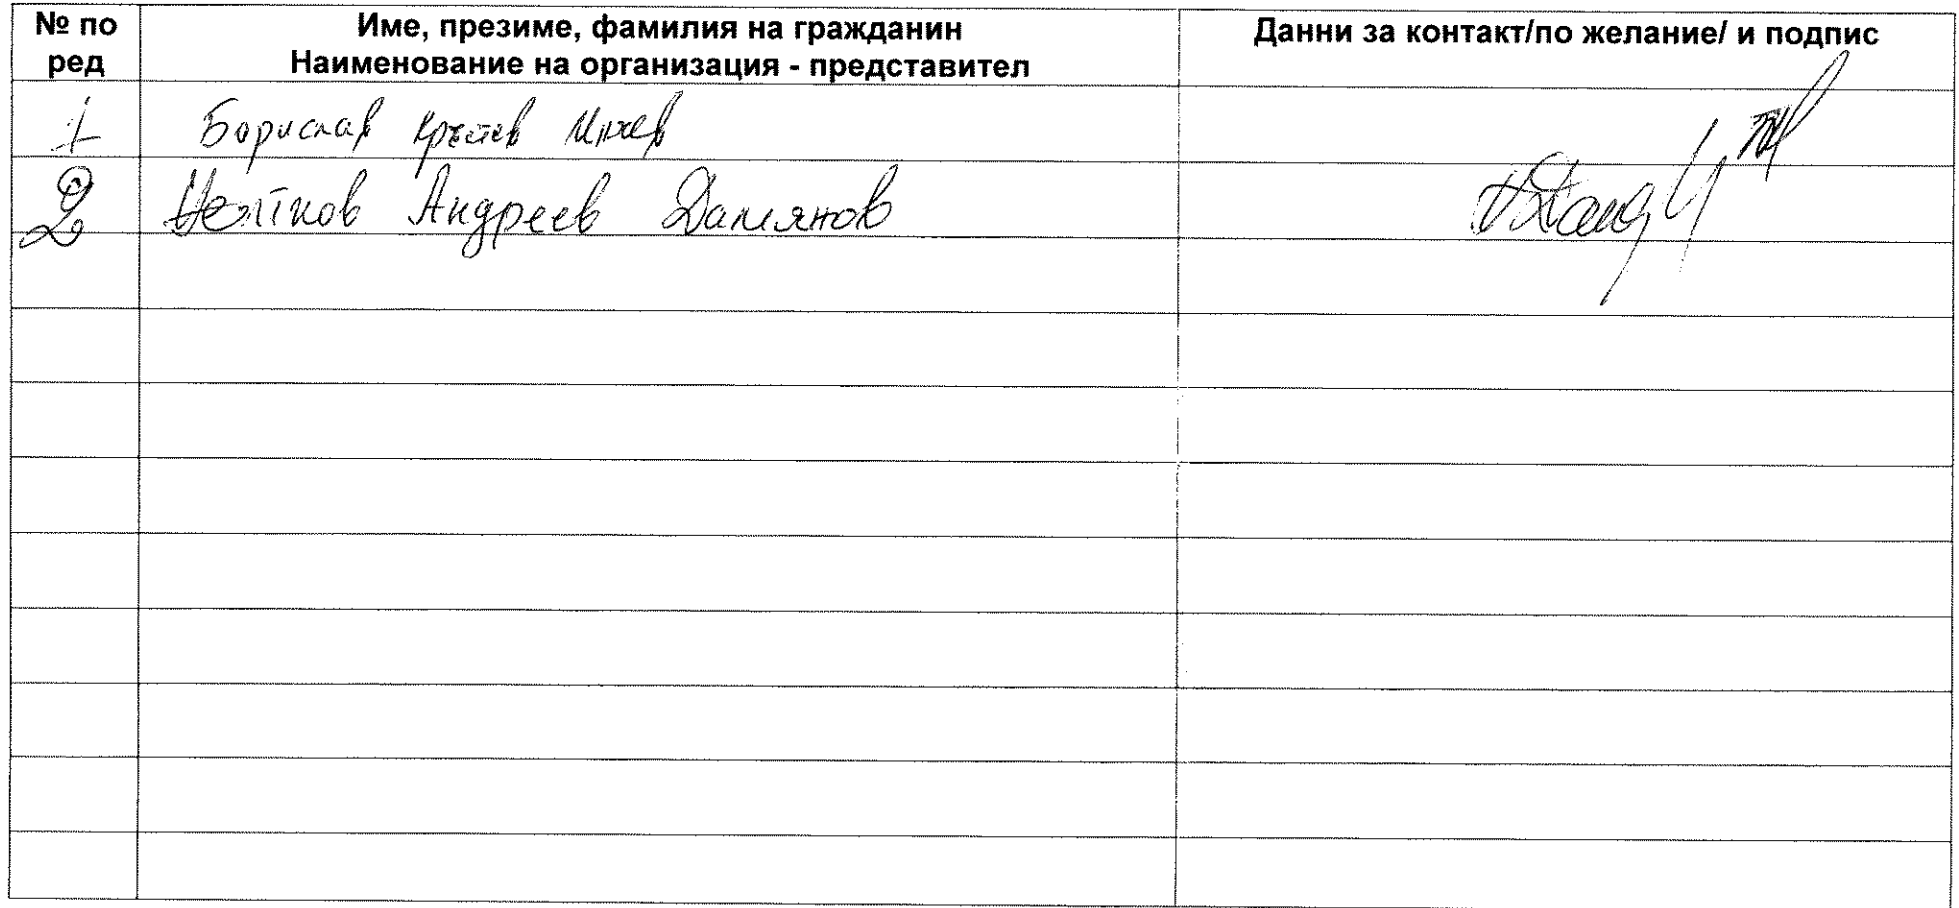 № по ред
Име, презиме, фамилия на гражданин
Наименование на организация - представител
Данни за контакт/по желание/ и подпис
1 Борислав Кръстев
2 Андреев Дамянов